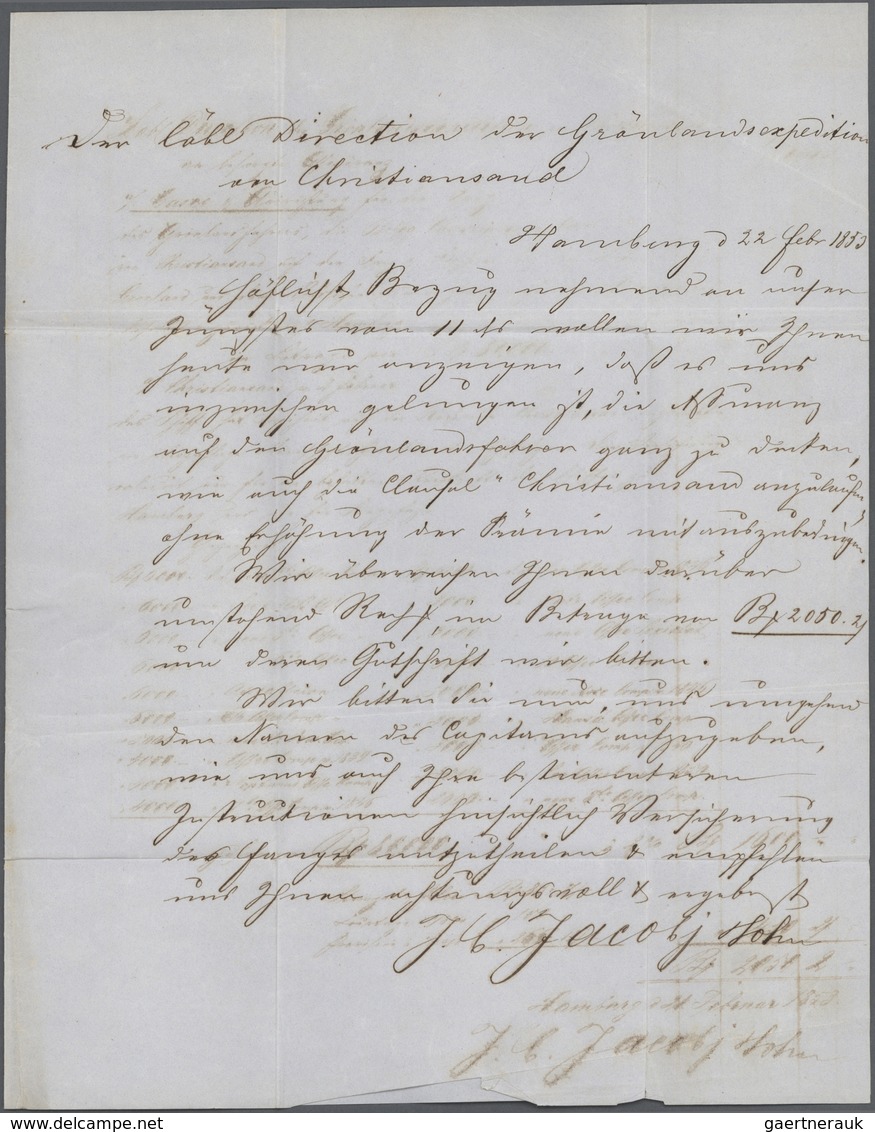 Der löbl Direction der Grönlandsexpedition
von Christiansand
Hamburg d 22 Febr 1853
Höflichst Bezug nehmend an unser
Jüngstes vom 11 ds wollen wir Ihnen
heute nur anzeigen, daß es uns
inzwischen gelungen ist, die Assuranz
auf den Grönlandsfahrer ganz zu decken,
wie auch die Clausel "Christiansand anzulaufen"
ohne Erhöhung der Prämie mit auszubedingen.
Wir überreichen Ihnen darüber
umstehend Rechg im Betrage von 2050.2
um deren Gutschrift wir bitten.
Wir bitten Sie nun, uns umgehend
den Namen des Capitains aufzugeben,
wie uns auch Ihre bestimmteren
Instructionen hinsichtlich Versicherung
des Fanges mitzutheilen & empfehlen
uns Ihnen achtungsvoll & ergebenst
J. C. Jacobj Sohn
2050 2
Hamburg Februar 1853
J. C. Jacobj Sohn
gaertnerauk
delcampe.net